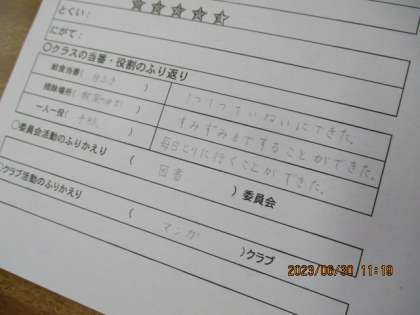 とくい：
にがて：
○クラスの当番・役割のふり返り
給食当番( ) 1つ1つていねいにできた。
掃除場所( ) すみずみまですることができた。
一人一役( 手紙 ) 毎日とりに行くことができた。
○委員会活動のふりかえり
( 図書 )委員会
○クラブ活動のふりかえり
( マンガ )クラブ
2023/06/30 11:19